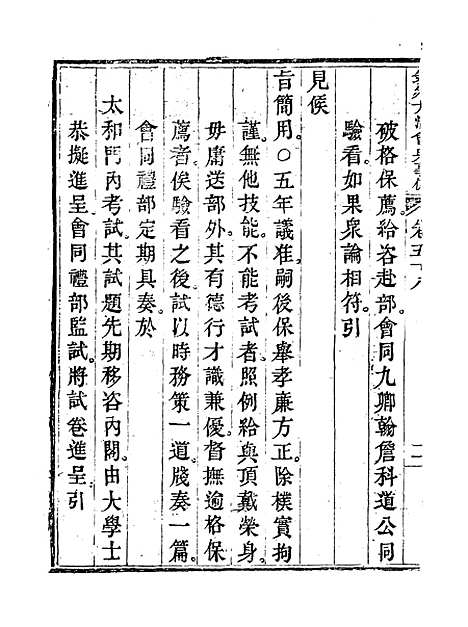 破格保薦給咨赴部會同九卿翰詹科道公同
驗看如果衆論相符引
見候
旨簡用○五年議准嗣後保舉孝廉方正除樸實拘
謹無他技能不能考試者照例給與頂戴榮身
毋庸送部外其有德行才識兼優督撫逾格保
薦者俟驗看之後試以時務策一道牋奏一篇
會同禮部定期具奏於
太和門內考試其試題先期移咨內閣由大學士
恭擬進呈會同禮部監試將試卷進呈引